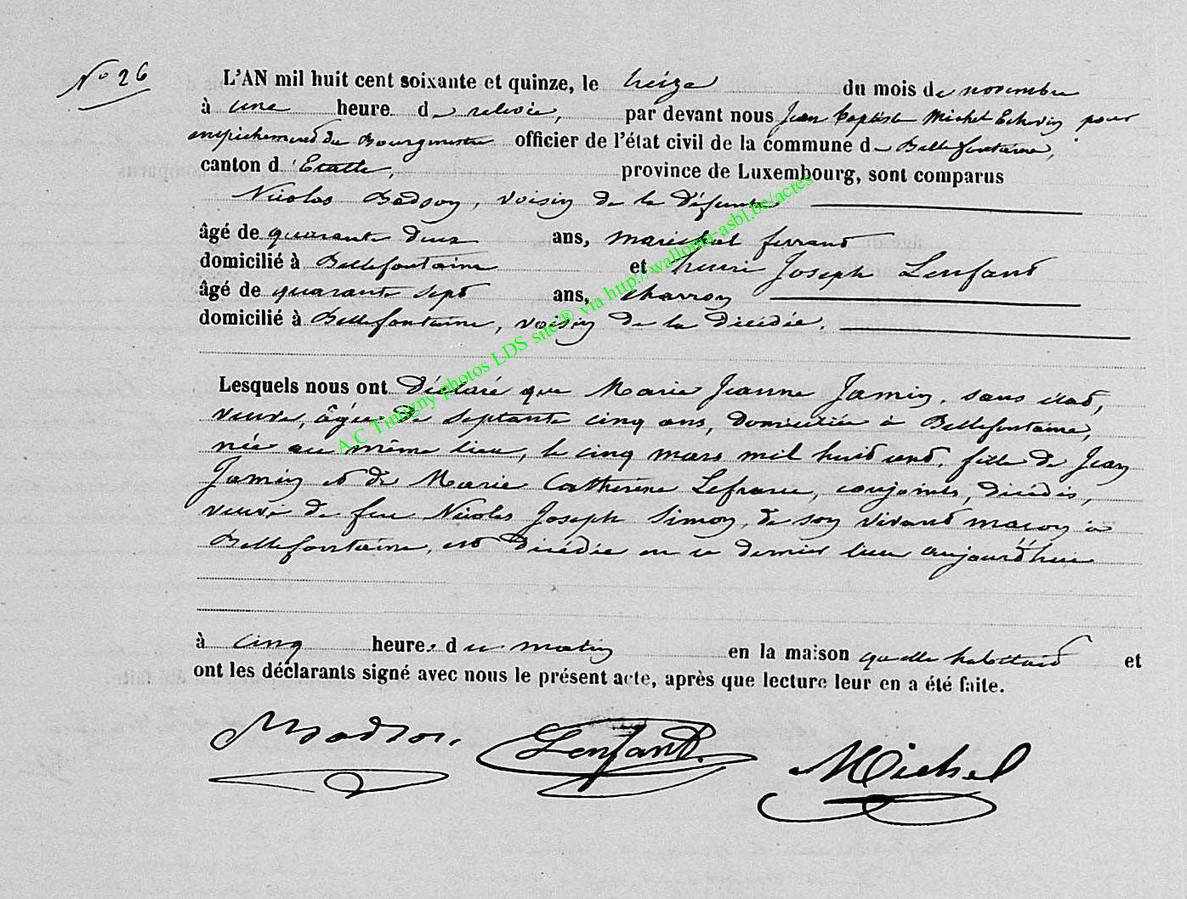 N° 26
L'AN mil huit cent soixante et quinze, le treize du mois de novembre
à une heure de relevée, par devant nous Jean Baptiste Michel Echevin pour
empêchement du Bourgmestre officier de l'état civil de la commune de Bellefontaine,
canton d'Etalle, province de Luxembourg, sont comparus
Nicolas Badson, voisin de la défunte
âgé de quarante deux ans, maréchal ferrant
domicilié à Bellefontaine et henri Joseph Lenfant
âgé de quarante sept ans, charron
domicilié à Bellefontaine, voisin de la décédée.
Lesquels nous ont déclaré que Marie Jeanne Jamin, sans état,
veuve, âgée de septante cinq ans, domiciliée à Bellefontaine,
née au même lieu, le cinq mars mil huit cent, fille de Jean
Jamin et de Marie Catherine Lefranc, conjoints, décédés,
veuve de feu Nicolas Joseph Simon, de son vivant maçon à
Bellefontaine, est décédée en ce dernier lieu aujourd'hui
à cinq heures du matin en la maison quelle habittait et
ont les déclarants signé avec nous le présent acte, après que lecture leur en a été faite.
Lenfant. Michel
A.C Tintigny photos LDS site® via http://wallonia-asbl.be/actes